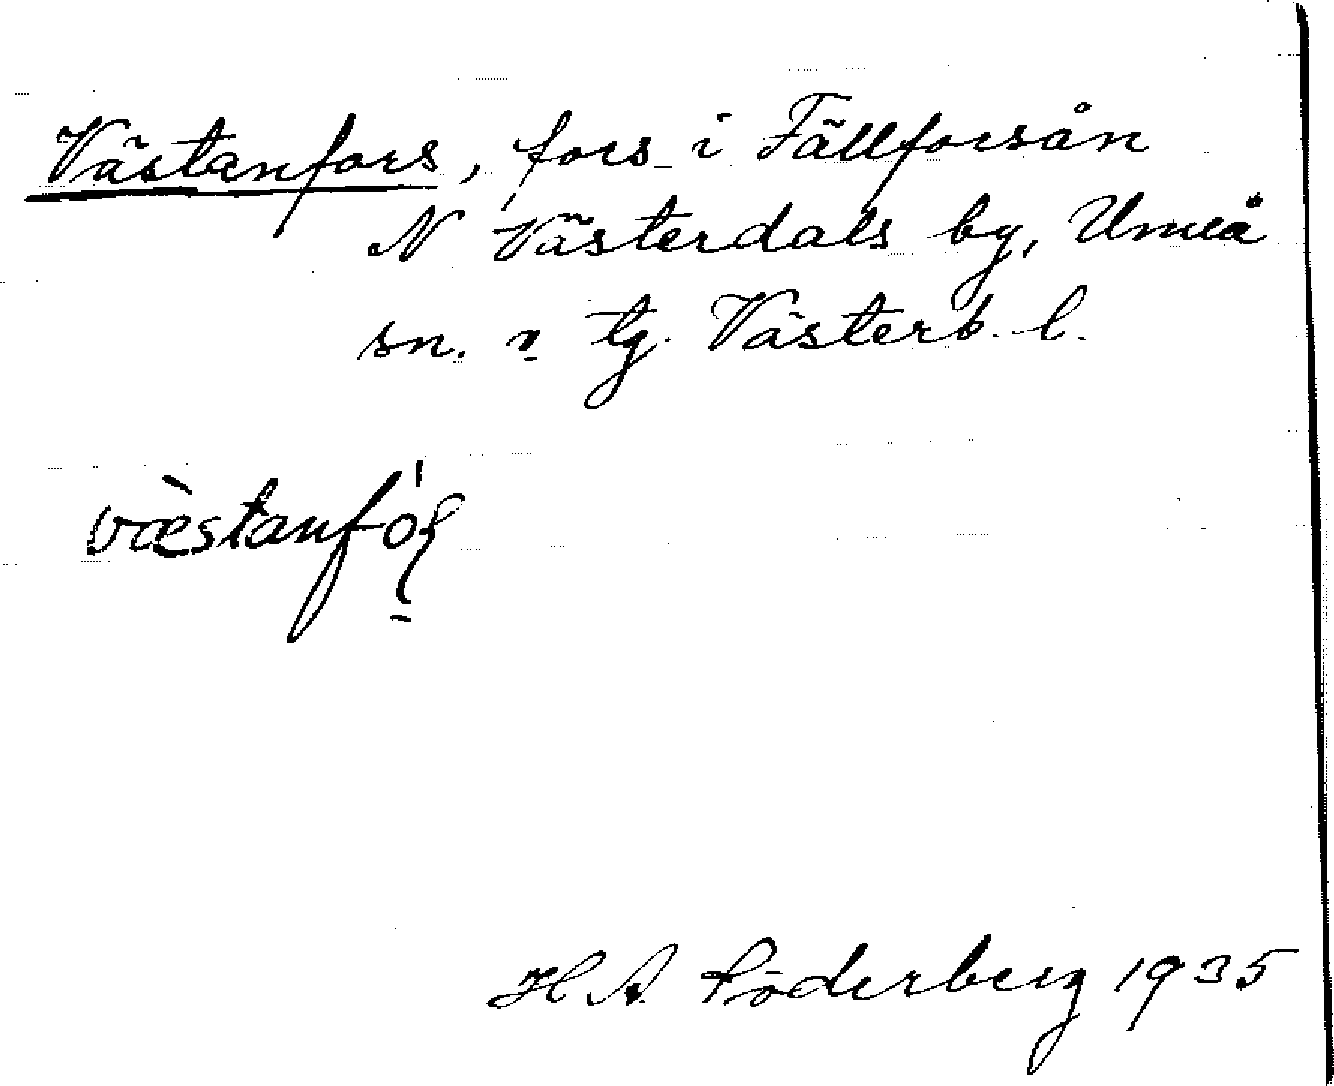 Västanfors, fors i Fällforsån
N Västerdals by, Umeå
sn. o tg. Västerb. l.
H A Söderberg 1935